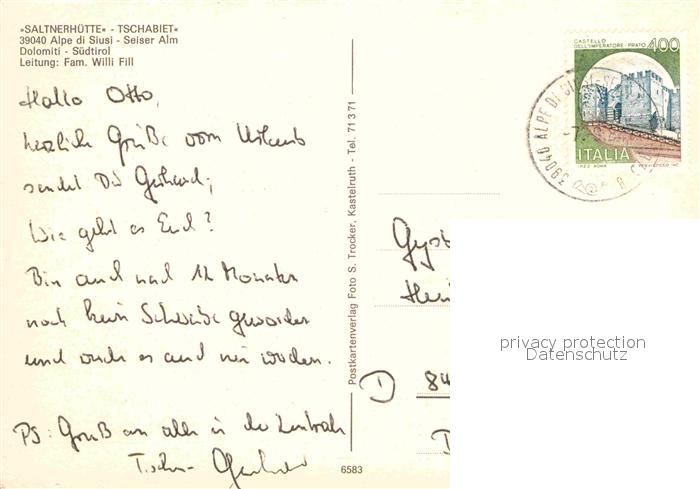 »SALTNERHÜTTE« - TSCHABIET«
39040 Alpe di Siusi - Seiser Alm
Dolomiti - Südtirol
Leitung: Fam. Willi Fill
Hallo Otto,
herzliche Grüße vom Urlaub
sendet Dir Gerhard;
Wie geht es Euch?
Bin auch nach 12 Monaten
noch kein Schwabe geworden
und werde es auch nie werden.
PS: Gruß an alle in der Zentrale
Tschau Gerhard
Postkartenverlag Foto S. Trocker, Kastelruth - Tel. 71371
6583
CASTELLO
DELL'IMPERATORE · PRATO
400
ITALIA
39040 ALPE DI SIUSI
Hei
D
84
privacy protection
Datenschutz